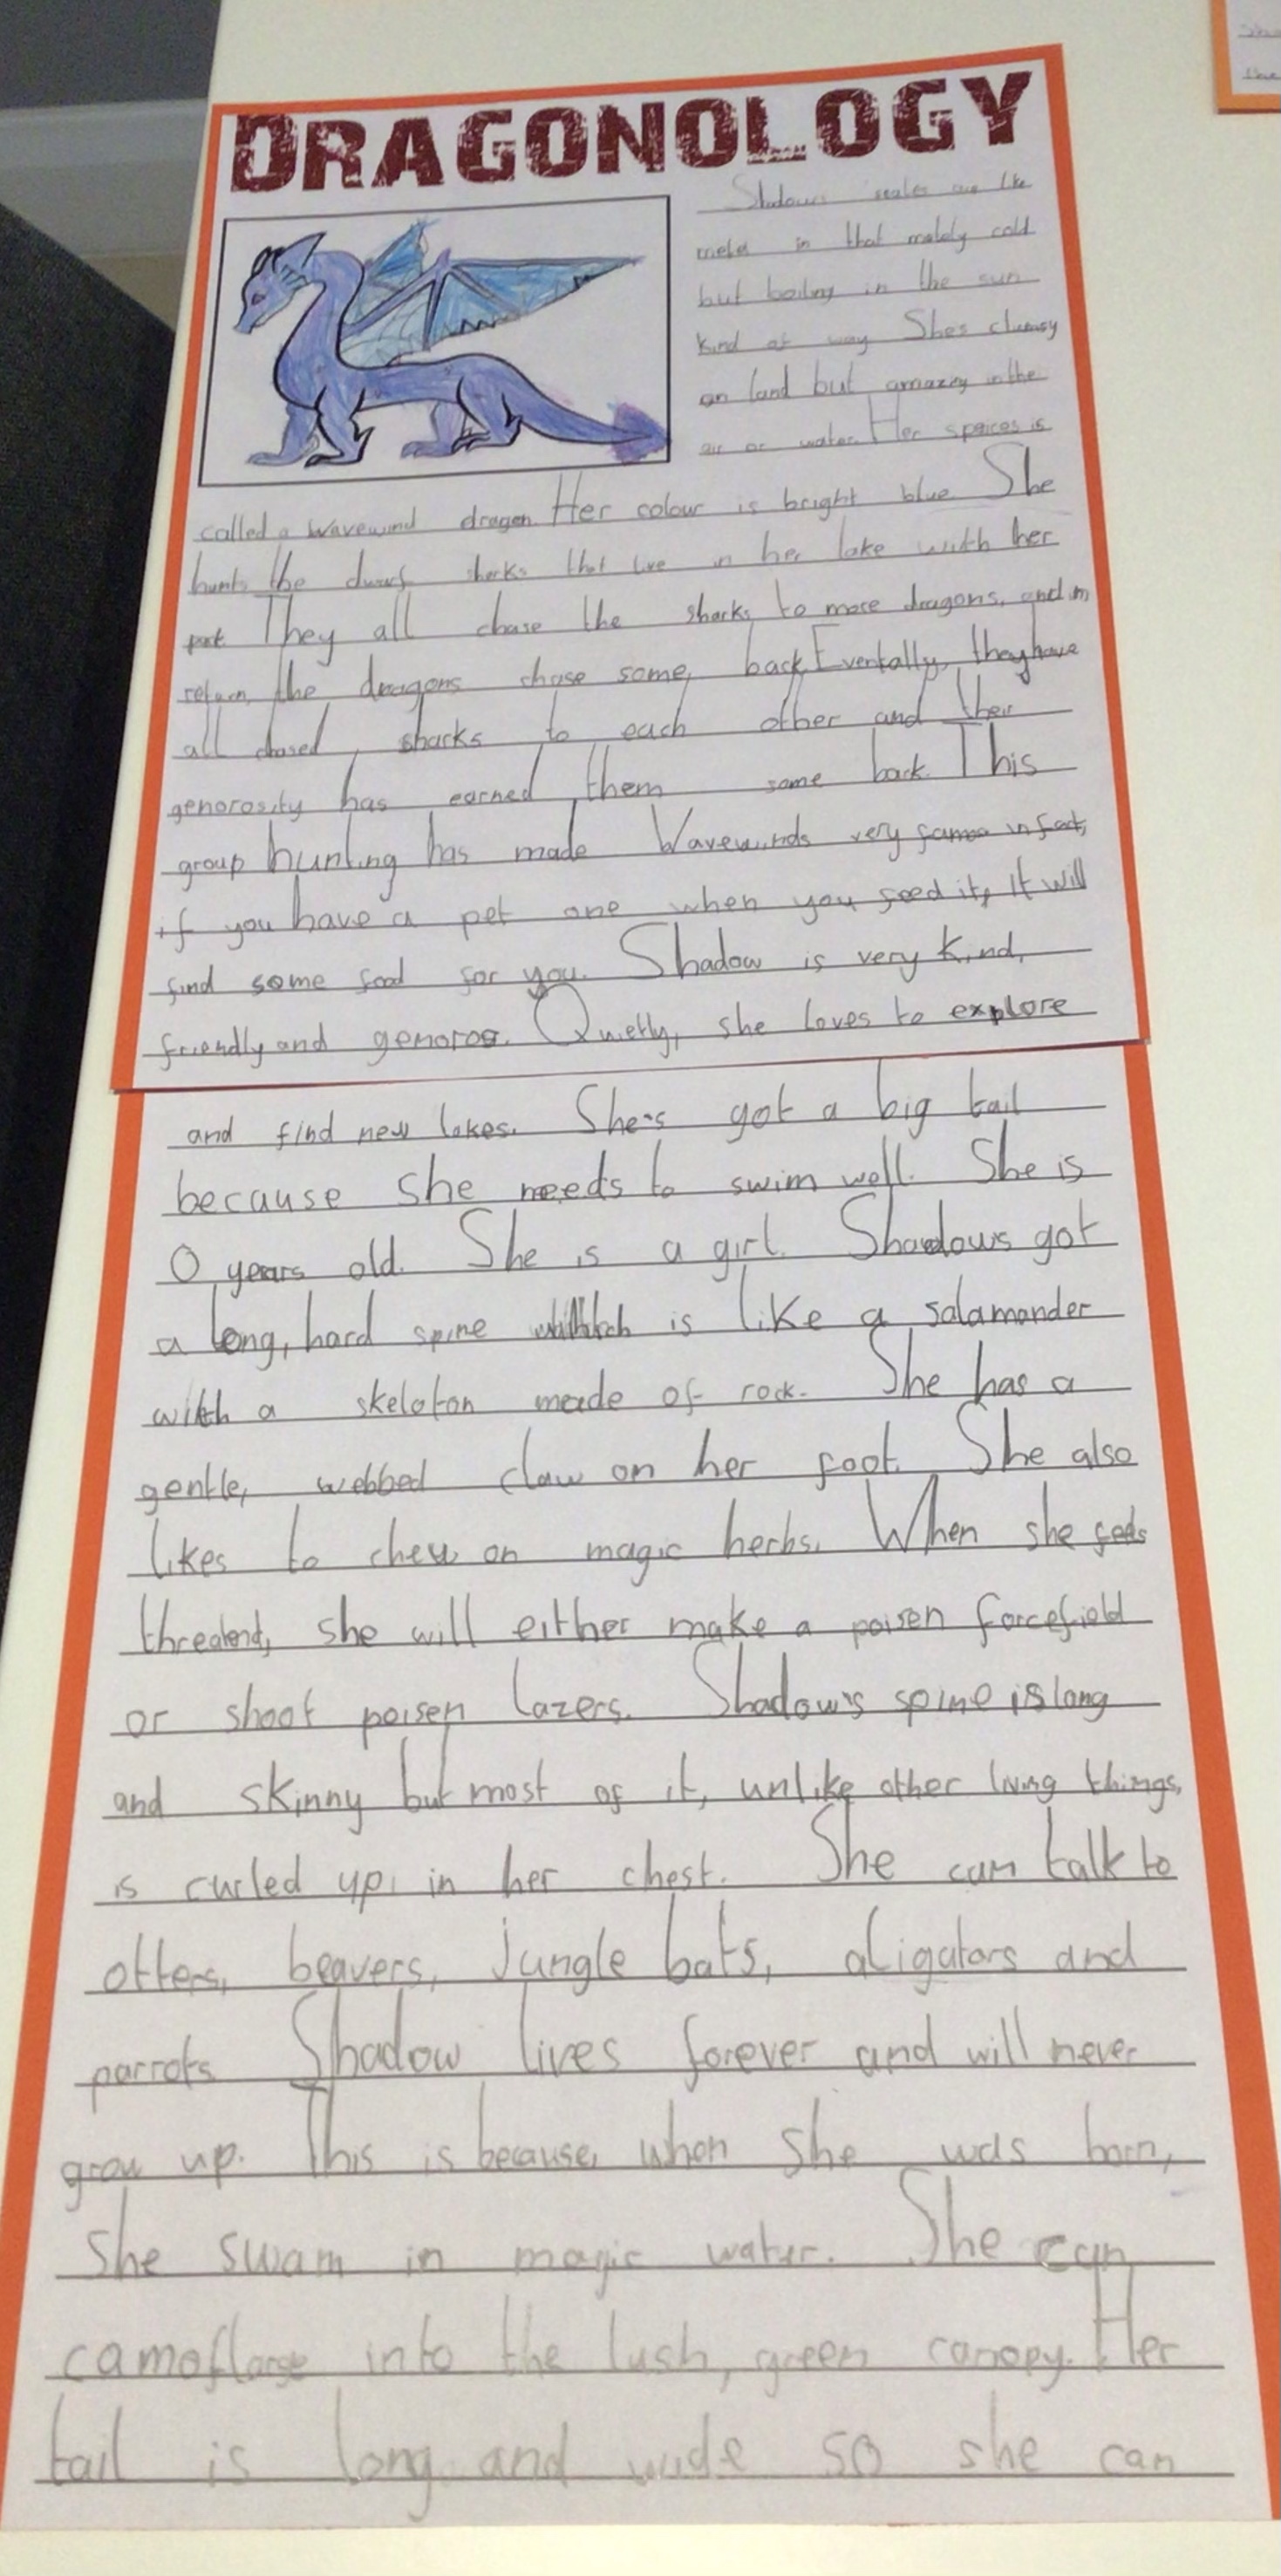 DRAGONOLOGY
Shadows scales are like
metal in that mataly cold
but boiling in the sun
kind of way She's clumsy
on land but amazing in the
air or water. Her speices is
called a Wavewind dragon. Her colour is bright blue. She
hunts the dwarf sharks that live in her lake with her
pack. They all chase the sharks to more dragons, and in
return, the dragons chase some, back. Eventally, they have
all chased, sharks to each other and their
genorosity has earned them some back. This
group hunting has made Wavewinds very in fact,
if you have a pet one when you feed it, It will
find some food for you. Shadow is very kind,
friendly and genoros. Quietly, she loves to explore
and find new lakes. She's got a big tail
because she needs to swim well. She is
0 years old. She is a girl. Shadow's got
a long, hard spine which is like a salamander
with a skeleton made of rock. She has a
gentle, webbed claw on her foot. She also
likes to chew on magic herbs. When she feels
she will either make a poisen forcefield
or shoot poisen lazers. Shadow's spine is long
and skinny but most of it, unlike other living things,
is curled up, in her chest. She can talk to
otters, beavers, jungle bats, aligators and
parrots. Shadow lives forever and will never
grow up. This is because, when she was born,
she swam in magic water. She can
into the lush, green canopy. Her
tail is long and wide so she can